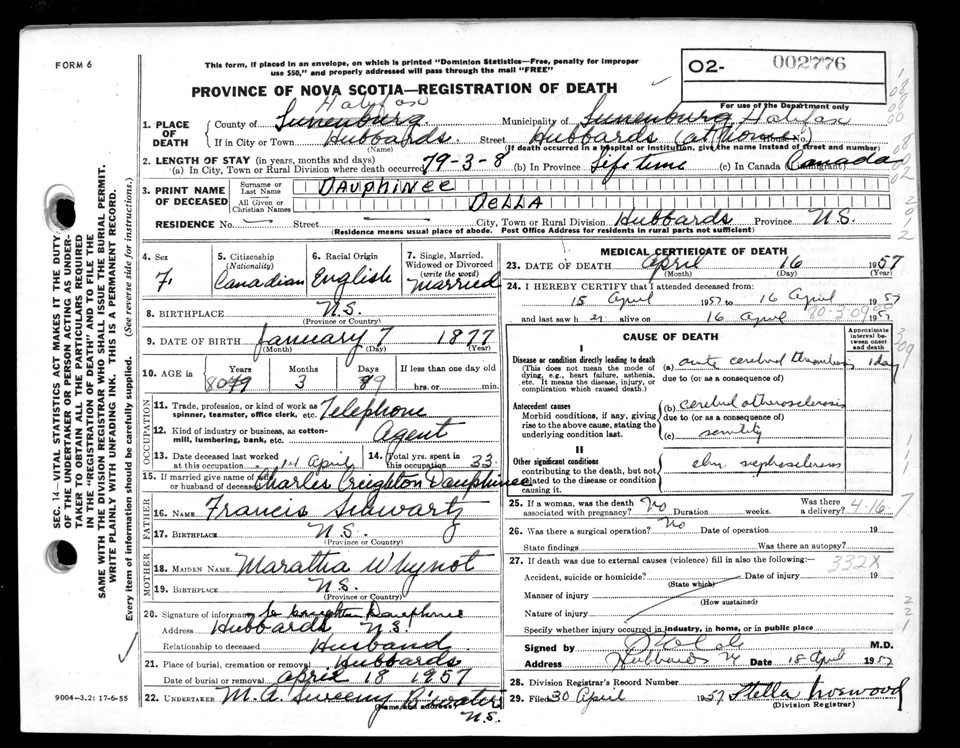 FORM 6
This form, if placed in an envelope, on which is printed "Dominion Statistics—Free, penalty for improper
use $50," and properly addressed will pass through the mail "FREE"
O2- 002776
PROVINCE OF NOVA SCOTIA—REGISTRATION OF DEATH
For use of the Department only
Halifax
1. PLACE OF DEATH
County of Lunenburg Municipality of Lunenburg Halifax
If in City or Town Hubbards. Street Hubbards (at home) House No.
(Name) (If death occurred in a hospital or institution, give the name instead of street and number)
2. LENGTH OF STAY (in years, months and days)
(a) In City, Town or Rural Division where death occurred 79-3-8 (b) In Province Life time (c) In Canada (if immigrant) Canada
3. PRINT NAME OF DECEASED
Surname or Last Name DAUPHINEE
All Given or Christian Names DELLA
RESIDENCE No. Street City, Town or Rural Division Hubbards Province N.S.
(Residence means usual place of abode. Post Office Address for residents in rural parts not sufficient)
4. Sex F.
5. Citizenship (Nationality) Canadian
6. Racial Origin English
7. Single, Married, Widowed or Divorced (write the word) Married
8. BIRTHPLACE N.S.
(Province or Country)
9. DATE OF BIRTH January 7 1877
(Month) (Day) (Year)
10. AGE in Years Months Days If less than one day old
80 79 3 9 hrs. or min.
OCCUPATION
11. Trade, profession, or kind of work as spinner, teamster, office clerk, etc. Telephone
12. Kind of industry or business, as cotton-mill, lumbering, bank, etc. Agent
13. Date deceased last worked at this occupation 14 April
14. Total yrs. spent in this occupation 33
15. If married give name of wife or husband of deceased Charles Creighton Dauphinee
FATHER
16. NAME Francis
17. BIRTHPLACE N.S.
(Province or Country)
MOTHER
18. MAIDEN NAME Maratha Whynot
19. BIRTHPLACE N.S.
(Province or Country)
20. Signature of informant Dauphinee
Address Hubbards N.S.
Relationship to deceased Husband
21. Place of burial, cremation or removal Hubbards
Date of burial or removal April 18 1957
22. UNDERTAKER M.A. Sweeny
(Name and address)
N.S.
9004-3.2: 17-6-55
SEC. 14—VITAL STATISTICS ACT MAKES IT THE DUTY
OF THE UNDERTAKER OR PERSON ACTING AS UNDER-
TAKER TO OBTAIN ALL THE PARTICULARS REQUIRED
IN THE "REGISTRATION OF DEATH" AND TO FILE THE
SAME WITH THE DIVISION REGISTRAR WHO SHALL ISSUE THE BURIAL PERMIT.
WRITE PLAINLY WITH UNFADING INK. THIS IS A PERMANENT RECORD.
Every item of information should be carefully supplied. (See reverse side for instructions.)
MEDICAL CERTIFICATE OF DEATH
23. DATE OF DEATH April 16 1957
(Month) (Day) (Year)
24. I HEREBY CERTIFY that I attended deceased from:
15 April 1957 to 16 April 1957
and last saw her alive on 16 April 1957
CAUSE OF DEATH
Approximate interval between onset and death
I
Disease or condition directly leading to death
(This does not mean the mode of dying, e.g., heart failure, asthenia, etc. It means the disease, injury, or complication which caused death.)
(a) acute cerebral thrombosis 1 day
due to (or as a consequence of)
Antecedent causes
Morbid conditions, if any, giving rise to the above cause, stating the underlying condition last.
(b) cerebral atherosclerosis
due to (or as a consequence of)
(c) senility
II
Other significant conditions
contributing to the death, but not related to the disease or condition causing it.
chr. nephrosclerosis
25. If a woman, was the death associated with pregnancy? No Duration weeks. Was there a delivery? 4-16-7
26. Was there a surgical operation? No Date of operation 19
State findings Was there an autopsy?
27. If death was due to external causes (violence) fill in also the following: 332X
Accident, suicide or homicide? Date of injury 19
(State which)
Manner of injury
(How sustained)
Nature of injury
Specify whether injury occurred in industry, in home, or in public place
Signed by M.D.
Address Hubbards Date 18 April 1957
28. Division Registrar's Record Number
29. Filed 30 April 1957 Stella
(Division Registrar)